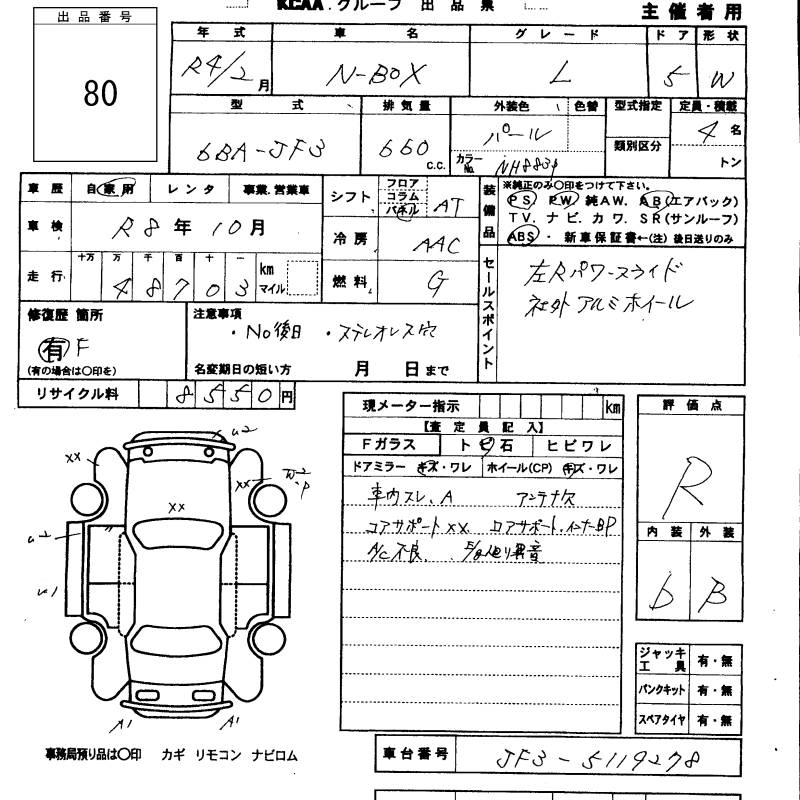 KCAA.グループ 出品票
主催者用
出品番号
80
年式 車名 グレード ドア 形状
R4/2月 N-BOX L 5 W
型式 排気量 外装色 色替 型式指定 定員・積載
6BA-JF3 660 c.c. パール 類別区分 4名
カラーNo. NH883P トン
車歴 自家用 レンタ 事業.営業車
車検 R8年10月
走行 十万 万 千 百 十 一 km マイル
48703
シフト フロア コラム パネル AT
冷房 AAC
燃料 G
装備品
※純正のみ○印をつけて下さい。
PS PW 純AW. AB(エアバック)
TV. ナビ. カワ. SR(サンルーフ)
ABS・ 新車保証書←(注)後日送りのみ
セールスポイント
左Rパワースライド
社外アルミホイール
修復歴 箇所
有 F
(有の場合は○印を)
注意事項
・No後日 ・ステレオレス穴
名変期日の短い方 月 日まで
リサイクル料 8550円
現メーター指示 km
【査定員記入】
Fガラス トビ石 ヒビワレ
ドアミラー キズ・ワレ ホイール(CP) キズ・ワレ
車内スレ、A アンテナ欠
コアサポートXX ロアサポート.インナーBP
A/C不良、 異音
評価点
R
内装 外装
D B
ジャッキ工具 有・無
パンクキット 有・無
スペアタイヤ 有・無
u2
xx
xx
w2
P
xx
u2
A1 A1
事務局預り品は○印 カギ リモコン ナビロム
車台番号 JF3-5119278